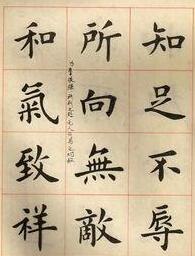 知足不辱
所向無敵
和氣致祥